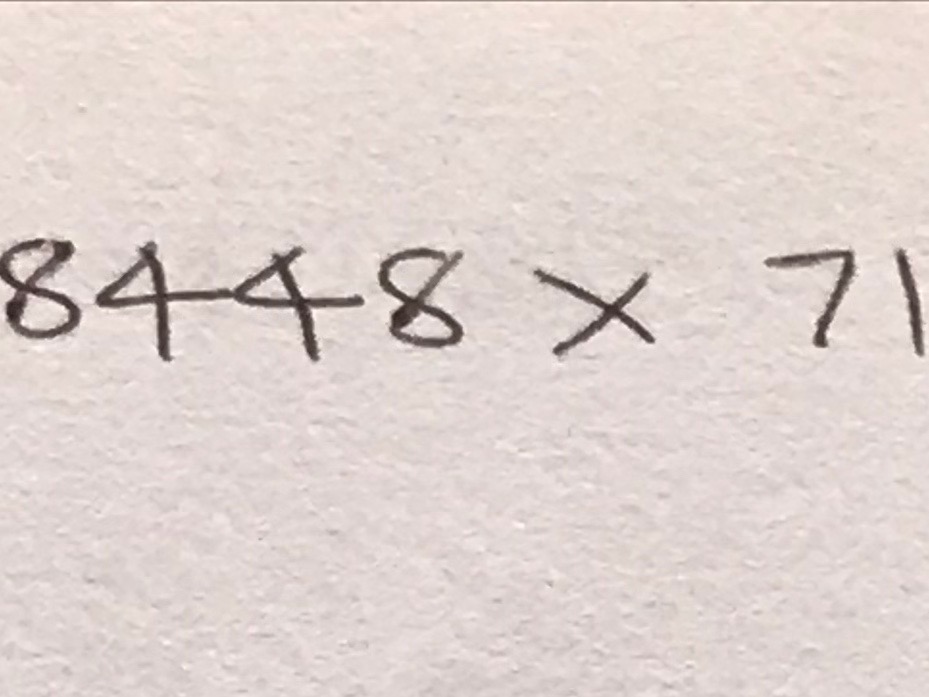 8448 × 71